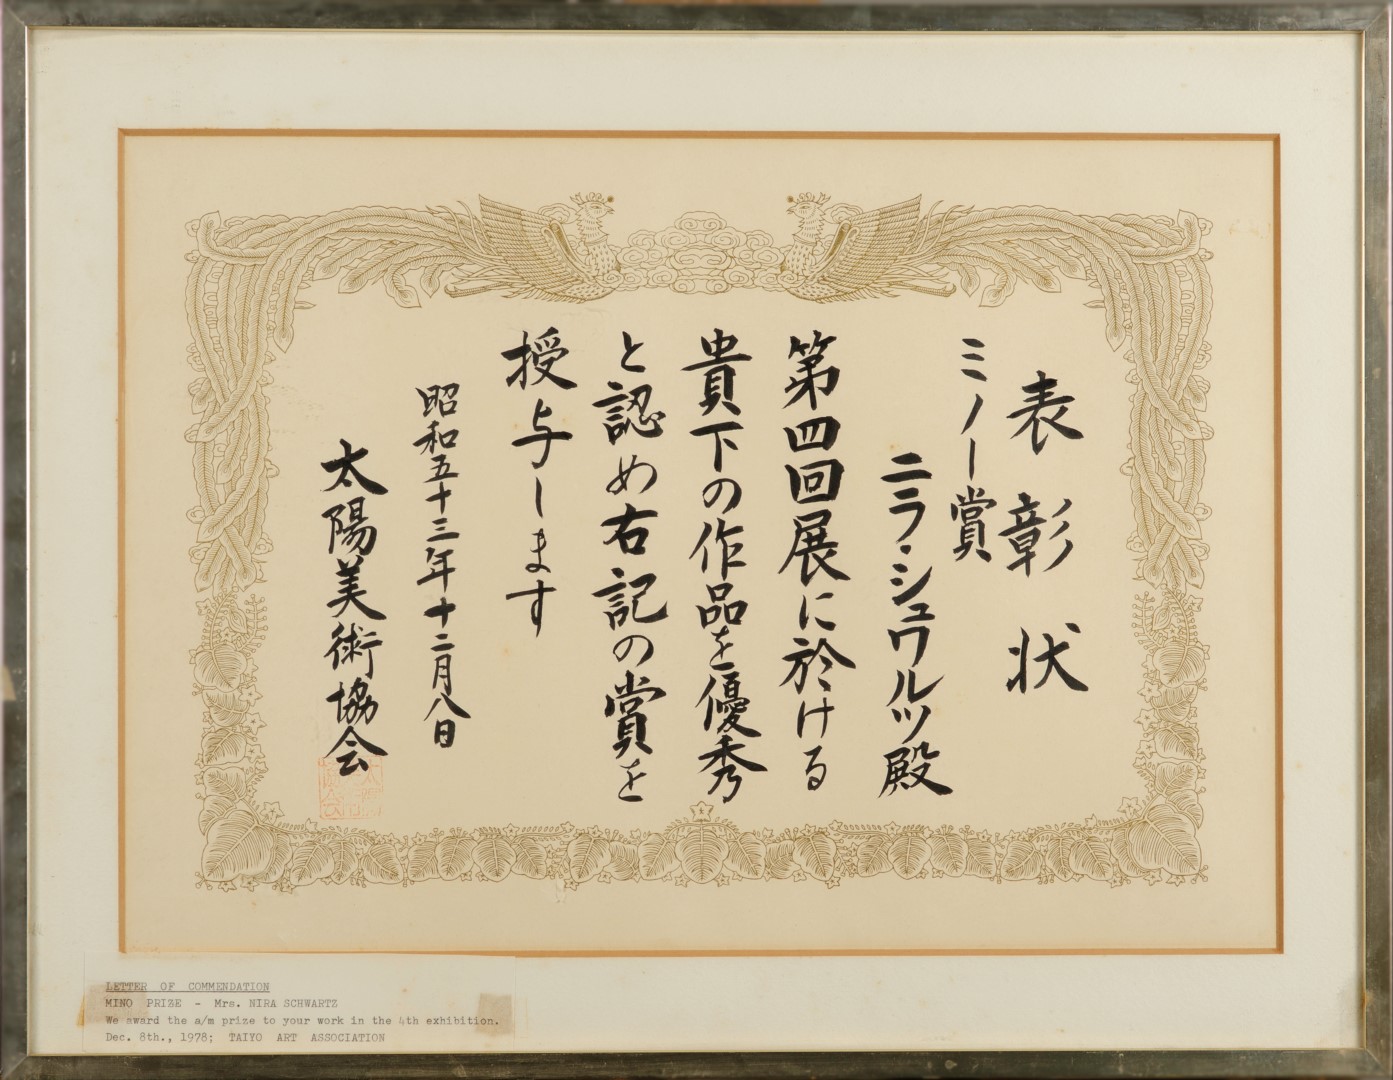 表彰状
ミノー賞
ニラ・シュワルツ殿
第四回展に於ける
貴下の作品を優秀
と認め右記の賞を
授与します
昭和五十三年十二月八日
太陽美術協会
LETTER OF COMMENDATION
MINO PRIZE - Mrs. NIRA SCHWARTZ
We award the a/m prize to your work in the 4th exhibition.
Dec. 8th., 1978; TAIYO ART ASSOCIATION